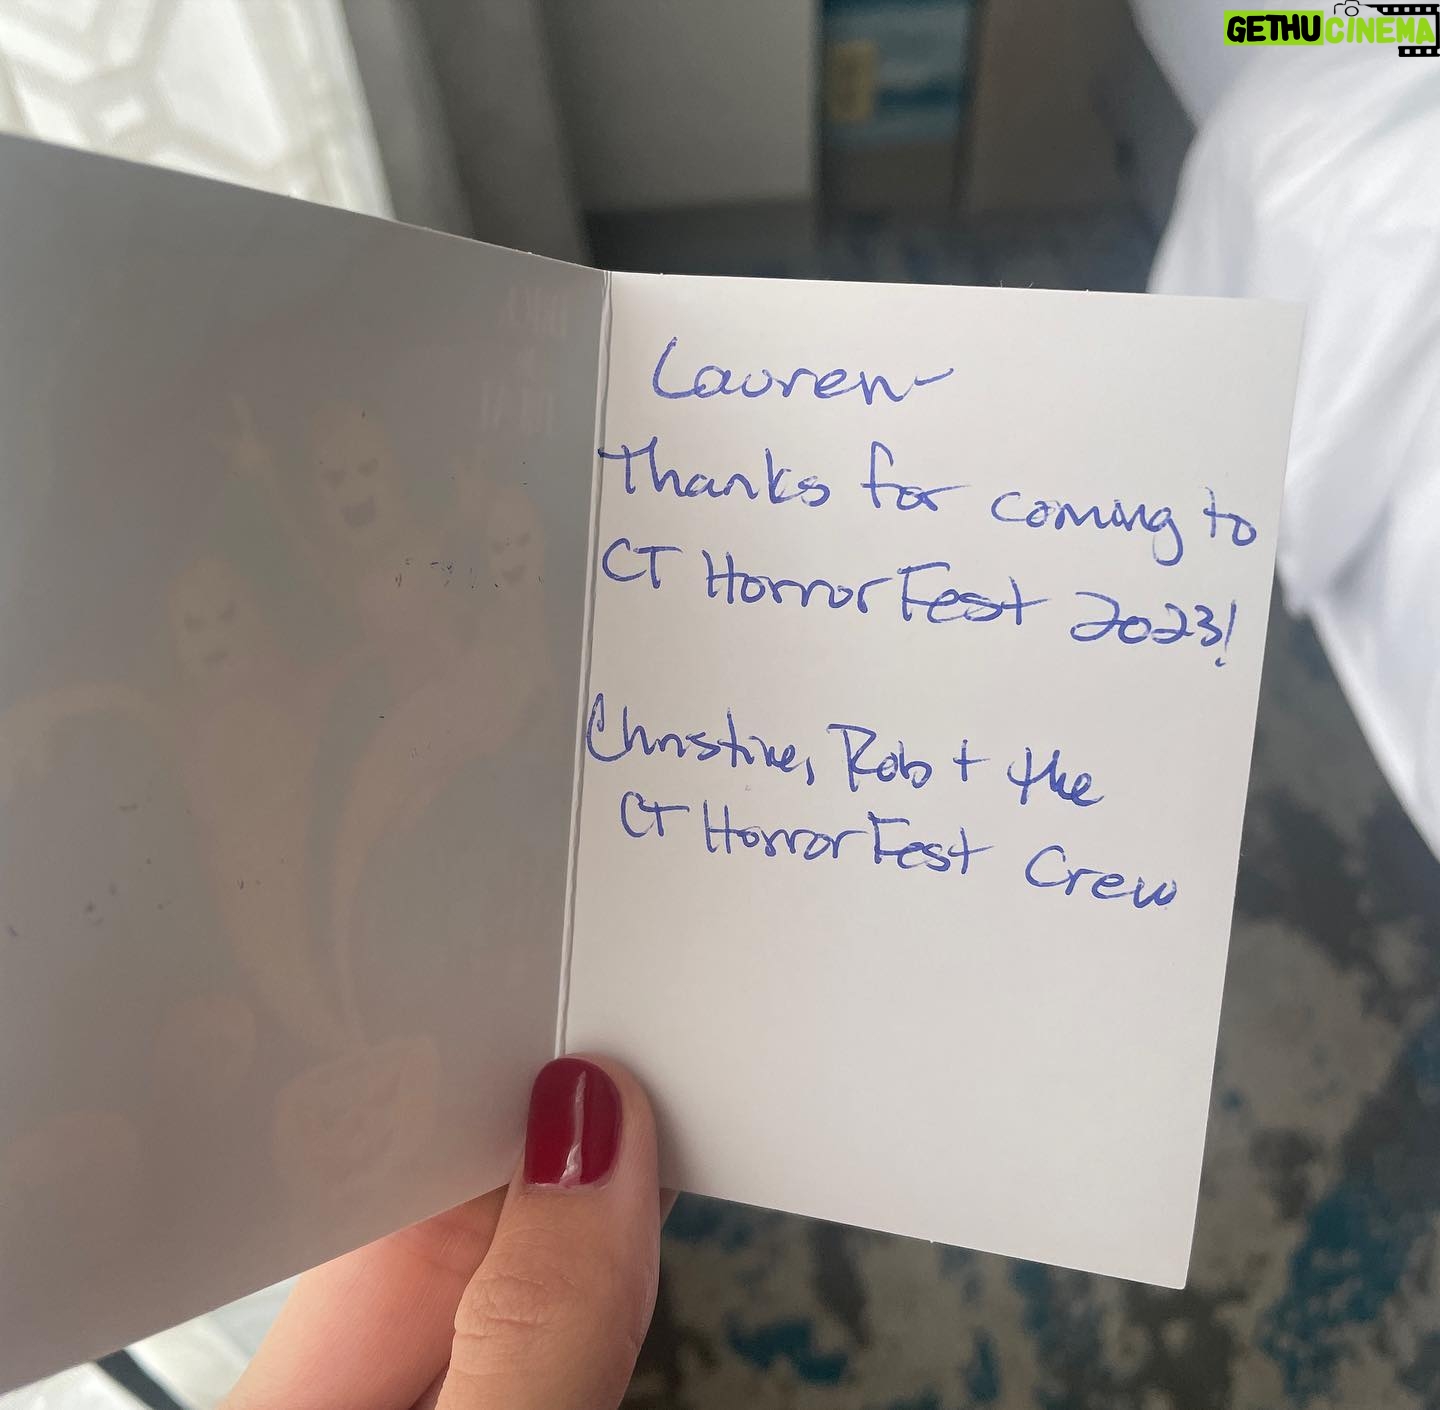 GETHUCINEMA
Lauren-
Thanks for coming to
CT HorrorFest 2023!
Christine, Rob + the
CT HorrorFest Crew